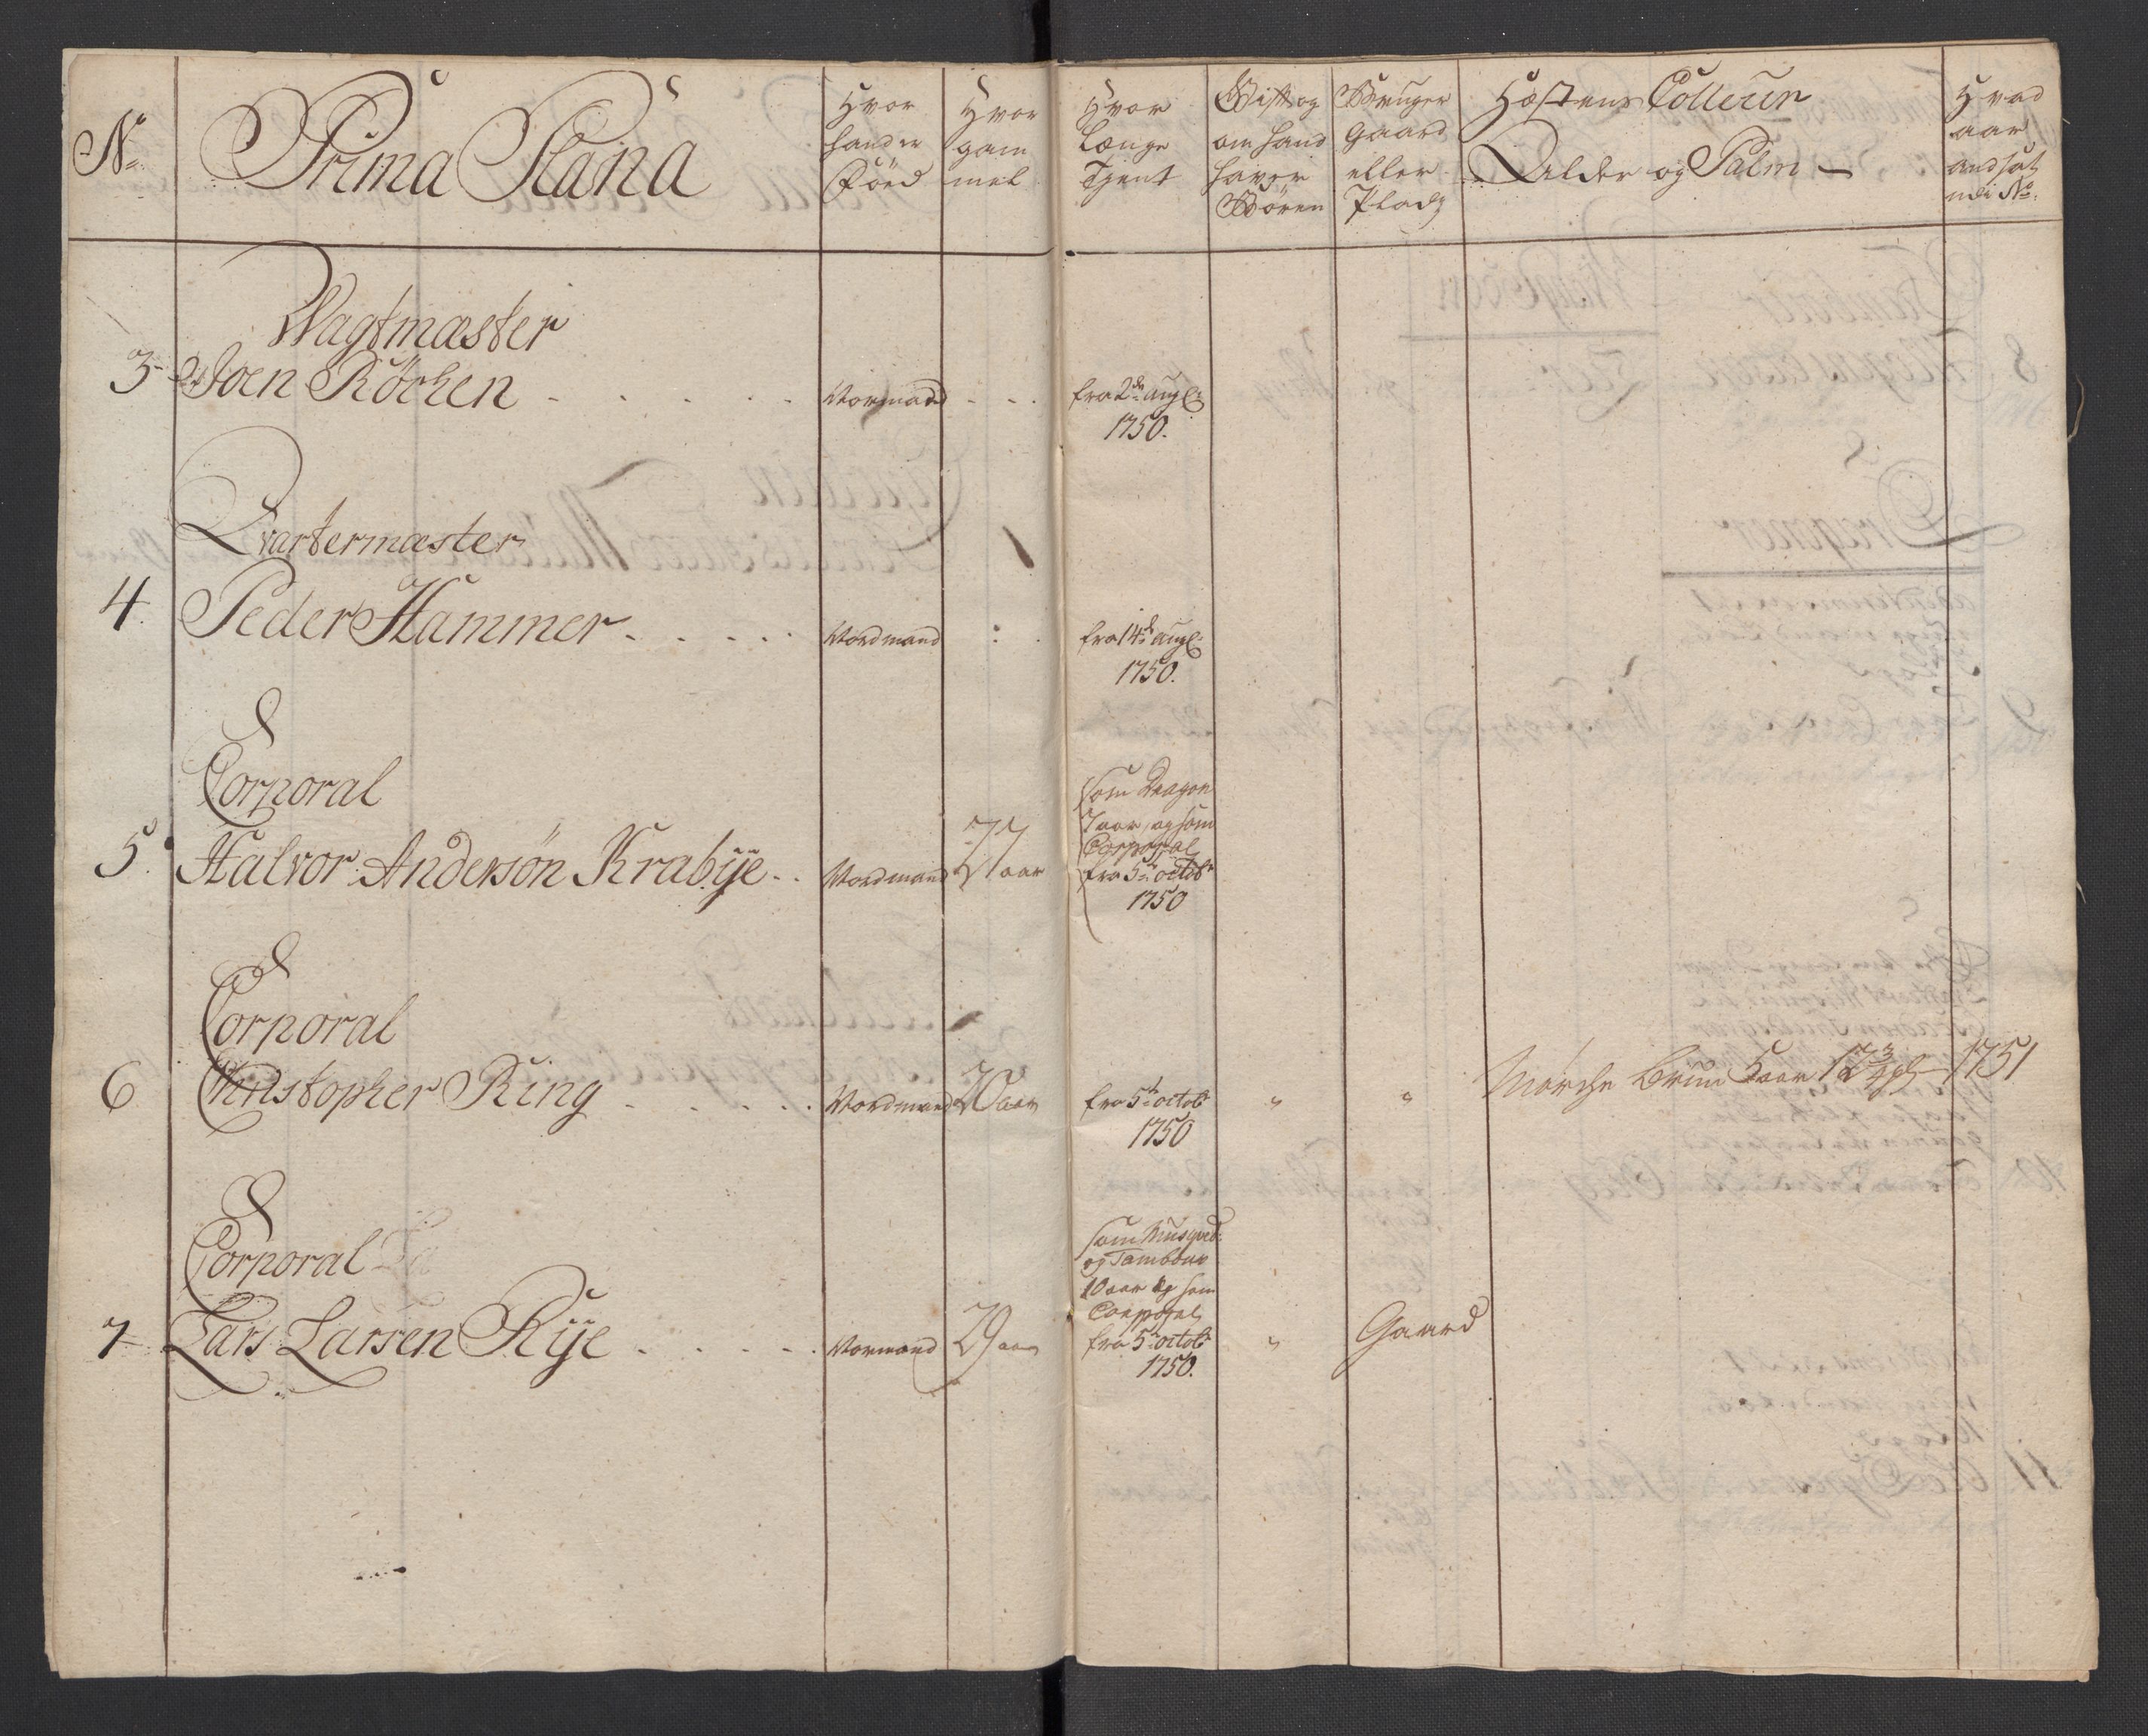 No
Prima Plana
Hvor
hand er
Föed
Hvor
gam
mel
Hvor
Længe
Tient
Gift og
om hand
haver
Bören
Bruger
Gaard
eller
Plads
Hæstens Colleur
Alder og Palm
Hvad
aar
andsat
udi No
Wagtmæster
3 Joen Röchen Normand fra 2de augs:
1750.
Qvartermæster
4. Peder Hammer Nordmand fra 14de augs:
1750.
Corporal
5. Halvor Andersön Krabye Nordmand 27 aar
som Dragon
7 aar, og som
Corporal
fra 5te octobr
1750
Corporal
6 Christopher Ring Nordmand 20 aar fra 5te octobr " " Mörche Brun 5 aar 12 3/4 pl 1751
1750
Corporal
7 Lars Larsen Rye Normand 29 aar
som Musqvet:
og Tambour
10 aar og som
Corporal
fra 5te octobr " Gaard
1750.